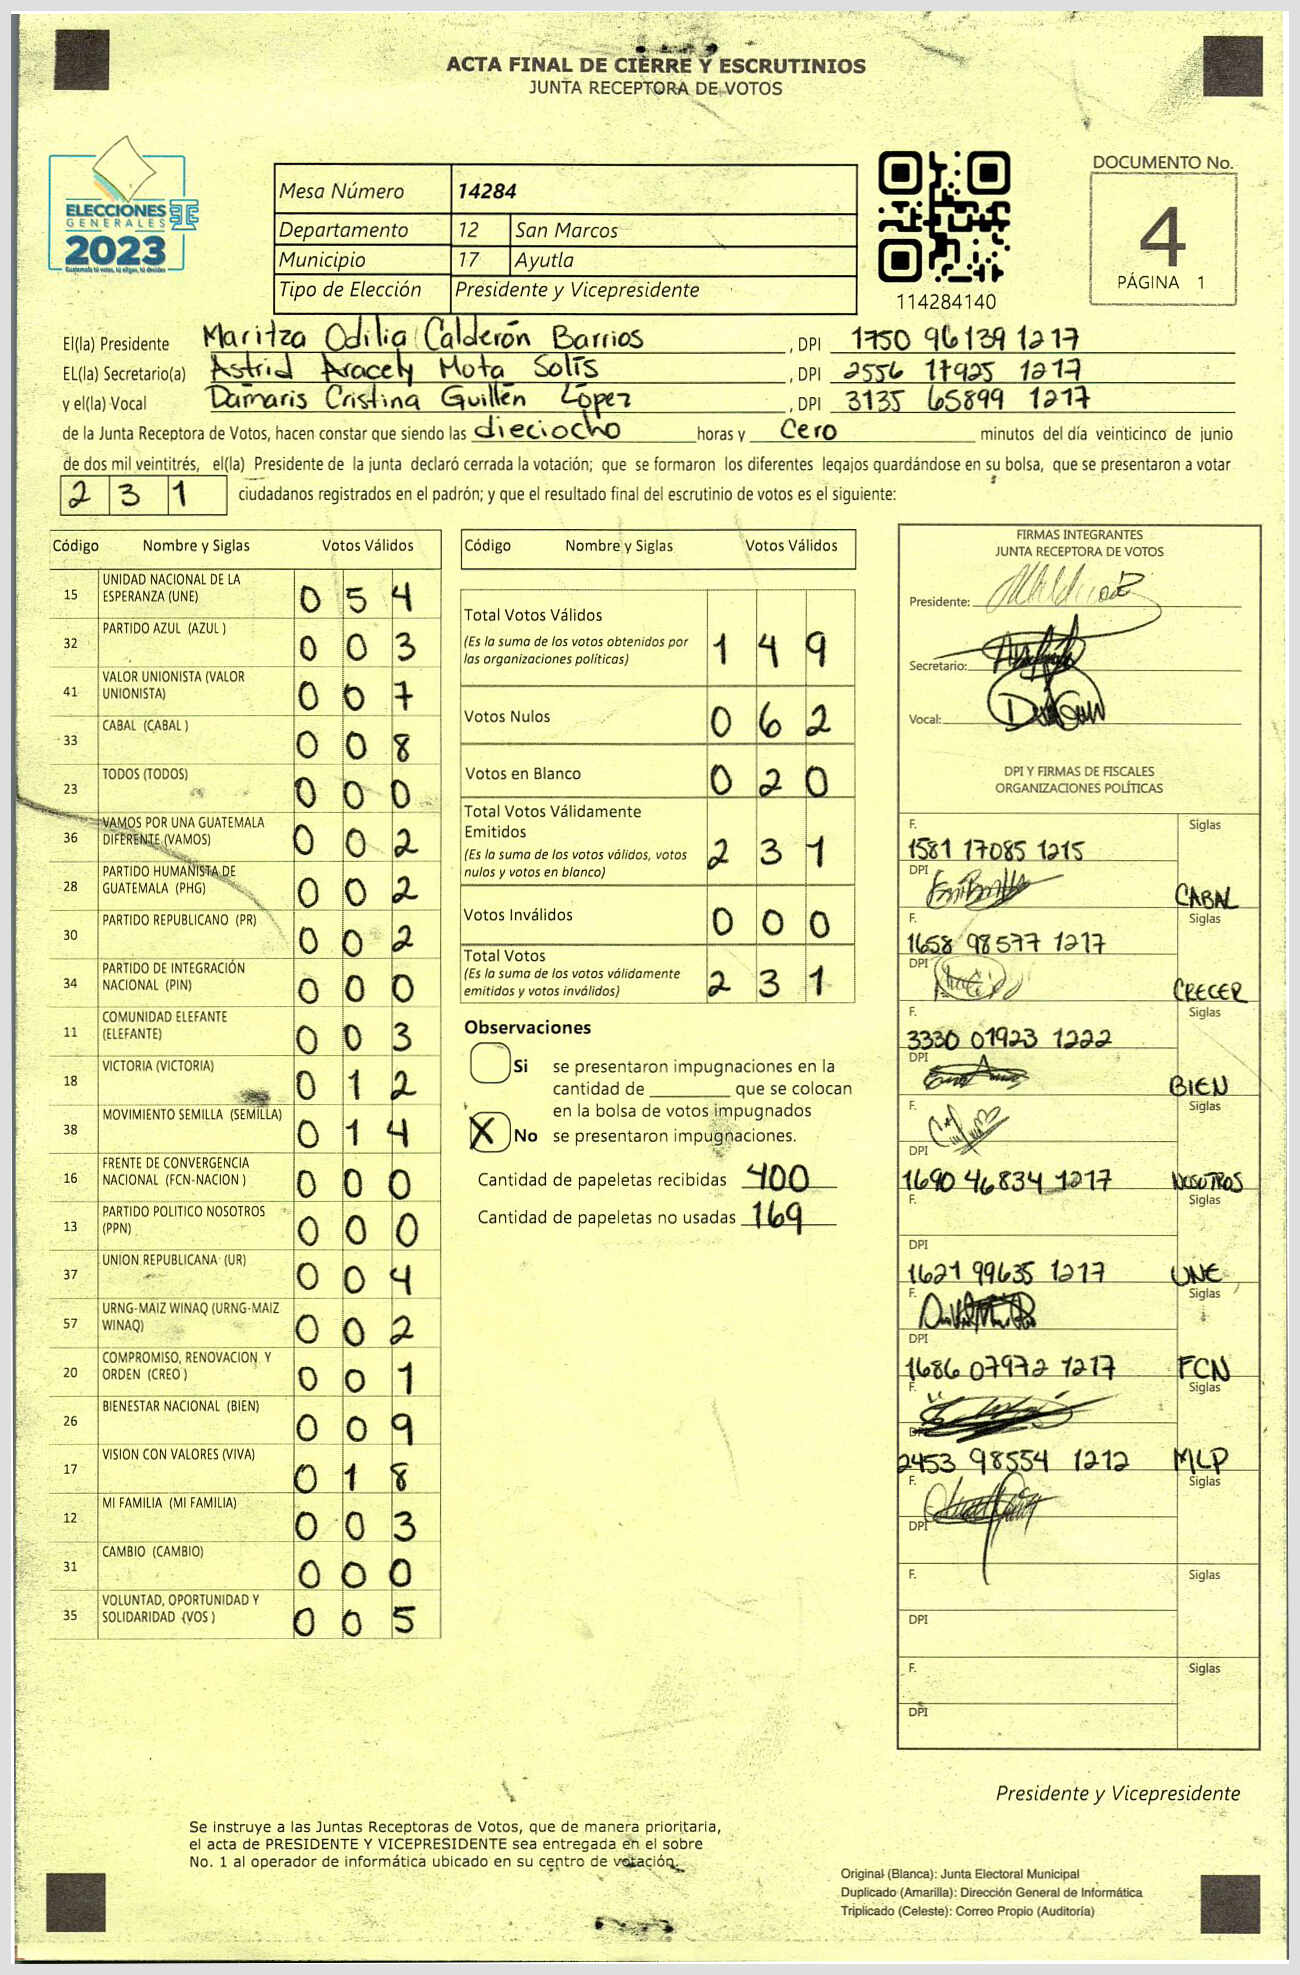 ACTA FINAL DE CIERRE Y ESCRUTINIOS
JUNTA RECEPTORA DE VOTOS
ELECCIONES
GENERALES
2023
Guatemala tú votas, tú eliges, tú decides
Mesa Número 14284
Departamento 12 San Marcos
Municipio 17 Ayutla
Tipo de Elección Presidente y Vicepresidente
114284140
DOCUMENTO No.
4
PÁGINA 1
El(la) Presidente Maritza Odilia Calderón Barrios, DPI 1750 96139 1217
EL(la) Secretario(a) Astrid Aracely Mota Solís, DPI 2556 17925 1217
y el(la) Vocal Damaris Cristina Guillén López, DPI 3135 65899 1217
de la Junta Receptora de Votos, hacen constar que siendo las dieciocho horas y Cero minutos del día veinticinco de junio
de dos mil veintitrés, el(la) Presidente de la junta declaró cerrada la votación; que se formaron los diferentes legajos guardándose en su bolsa, que se presentaron a votar
231 ciudadanos registrados en el padrón; y que el resultado final del escrutinio de votos es el siguiente:
Código Nombre y Siglas Votos Válidos
15 UNIDAD NACIONAL DE LA ESPERANZA (UNE) 0 5 4
32 PARTIDO AZUL (AZUL ) 0 0 3
41 VALOR UNIONISTA (VALOR UNIONISTA) 0 0 7
33 CABAL (CABAL ) 0 0 8
23 TODOS (TODOS) 0 0 0
36 VAMOS POR UNA GUATEMALA DIFERENTE (VAMOS) 0 0 2
28 PARTIDO HUMANISTA DE GUATEMALA (PHG) 0 0 2
30 PARTIDO REPUBLICANO (PR) 0 0 2
34 PARTIDO DE INTEGRACIÓN NACIONAL (PIN) 0 0 0
11 COMUNIDAD ELEFANTE (ELEFANTE) 0 0 3
18 VICTORIA (VICTORIA) 0 1 2
38 MOVIMIENTO SEMILLA (SEMILLA) 0 1 4
16 FRENTE DE CONVERGENCIA NACIONAL (FCN-NACION ) 0 0 0
13 PARTIDO POLITICO NOSOTROS (PPN) 0 0 0
37 UNION REPUBLICANA (UR) 0 0 4
57 URNG-MAIZ WINAQ (URNG-MAIZ WINAQ) 0 0 2
20 COMPROMISO, RENOVACION Y ORDEN (CREO ) 0 0 1
26 BIENESTAR NACIONAL (BIEN) 0 0 9
17 VISION CON VALORES (VIVA) 0 1 8
12 MI FAMILIA (MI FAMILIA) 0 0 3
31 CAMBIO (CAMBIO) 0 0 0
35 VOLUNTAD, OPORTUNIDAD Y SOLIDARIDAD (VOS ) 0 0 5
Código Nombre y Siglas Votos Válidos
Total Votos Válidos 1 4 9
(Es la suma de los votos obtenidos por
las organizaciones políticas)
Votos Nulos 0 6 2
Votos en Blanco 0 2 0
Total Votos Válidamente
Emitidos 2 3 1
(Es la suma de los votos válidos, votos
nulos y votos en blanco)
Votos Inválidos 0 0 0
Total Votos 2 3 1
(Es la suma de los votos válidamente
emitidos y votos inválidos)
Observaciones
Si se presentaron impugnaciones en la
cantidad de ________ que se colocan
en la bolsa de votos impugnados
X No se presentaron impugnaciones.
Cantidad de papeletas recibidas 400
Cantidad de papeletas no usadas 169
FIRMAS INTEGRANTES
JUNTA RECEPTORA DE VOTOS
Presidente:
Secretario:
Vocal:
DPI Y FIRMAS DE FISCALES
ORGANIZACIONES POLÍTICAS
F. Siglas
1581 17085 1215
DPI CABAL
F. Siglas
1658 98577 1217
DPI CRECER
F. Siglas
3330 01923 1222
DPI BIEN
F. Siglas
DPI
1690 46834 1217 NOSOTROS
F. Siglas
DPI
1621 99635 1217 UNE
F. Siglas
DPI
1686 07972 1217 FCN
F. Siglas
DPI
2453 98554 1212 MLP
F. Siglas
DPI
F. Siglas
DPI
F. Siglas
DPI
Presidente y Vicepresidente
Se instruye a las Juntas Receptoras de Votos, que de manera prioritaria,
el acta de PRESIDENTE Y VICEPRESIDENTE sea entregada en el sobre
No. 1 al operador de informática ubicado en su centro de votación.
Original (Blanca): Junta Electoral Municipal
Duplicado (Amarilla): Dirección General de Informática
Triplicado (Celeste): Correo Propio (Auditoría)